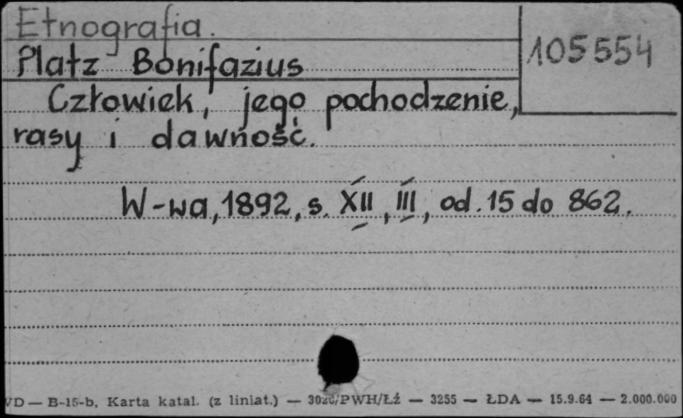 Etnografia.
105554
Platz Bonifazius
Człowiek, jego pochodzenie,
rasy i dawność.
W-wa, 1892, s. XII, III, od. 15 do 862.
VD — B-15-b. Karta katal. (z liniat.) — PWH/Łź — 3255 — ŁDA — 15.9.64 — 2.000.000